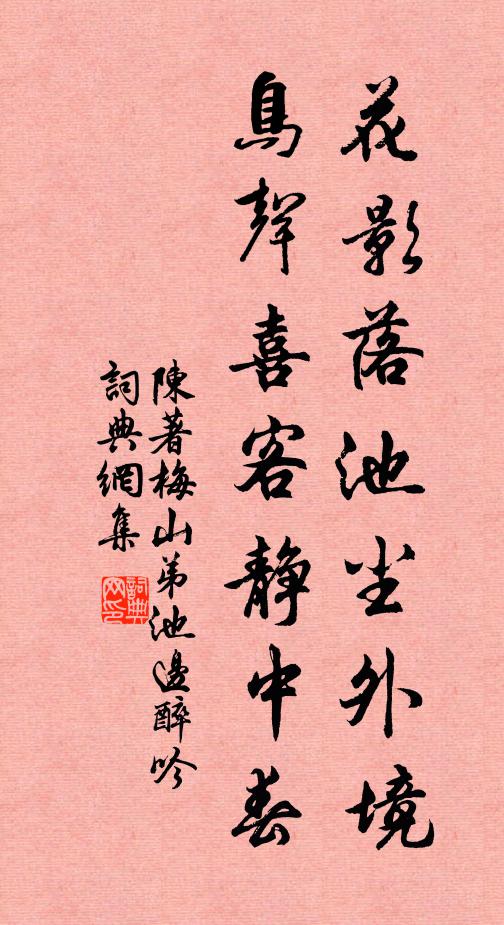 花影落池尘外境
鳥聲喜客静中春
陳著梅山弟池邊醉吟
詞典網集
詞典
网印